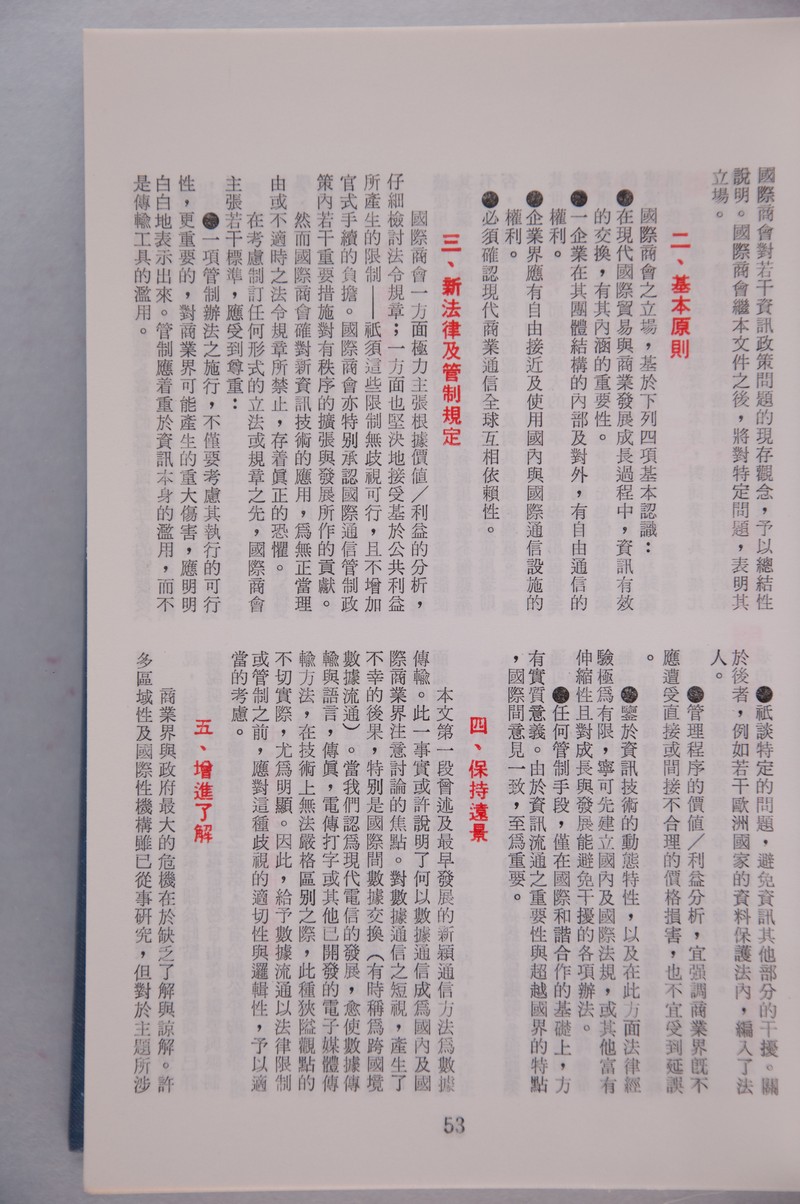 國際商會對若干資訊政策問題的現存觀念，予以總結性
說明。國際商會繼本文件之後，將對特定問題，表明其
立場。
二、基本原則
國際商會之立場，基於下列四項基本認識：
●在現代國際貿易與商業發展成長過程中，資訊有效
的交換，有其內涵的重要性。
●一企業在其團體結構的內部及對外，有自由通信的
權利。
●企業界應有自由接近及使用國內與國際通信設施的
權利。
●必須確認現代商業通信全球互相依賴性。
三、新法律及管制規定
國際商會一方面極力主張根據價値／利益的分析，
仔細檢討法令規章；一方面也堅決地接受基於公共利益
所產生的限制——祇須這些限制無歧視可行，且不增加
官式手續的負擔。國際商會亦特別承認國際通信管制政
策內若干重要措施對有秩序的擴張與發展所作的貢獻。
然而國際商會確對新資訊技術的應用，爲無正當理
由或不適時之法令規章所禁止，存着眞正的恐懼。
在考慮制訂任何形式的立法或規章之先，國際商會
主張若干標準，應受到尊重：
●一項管制辦法之施行，不僅要考慮其執行的可行
性，更重要的，對商業界可能產生的重大傷害，應明明
白白地表示出來。管制應着重於資訊本身的濫用，而不
是傳輸工具的濫用。
●祇談特定的問題，避免資訊其他部分的干擾。關
於後者，例如若干歐洲國家的資料保護法內，編入了法
人。
●管理程序的價値／利益分析，宜强調商業界旣不
應遭受直接或間接不合理的價格損害，也不宜受到延誤
。
●鑒於資訊技術的動態特性，以及在此方面法律經
驗極爲有限，寧可先建立國內及國際法規，或其他富有
伸縮性且對成長與發展能避免干擾的各項辦法。
●任何管制手段，僅在國際和諧合作的基礎上，方
有實質意義。由於資訊流通之重要性與超越國界的特點
，國際間意見一致，至爲重要。
四、保持遠景
本文第一段曾述及最早發展的新穎通信方法爲數據
傳輸。此一事實或許說明了何以數據通信成爲國內及國
際商業界注意討論的焦點。對數據通信之短視，產生了
不幸的後果，特別是國際間數據交換（有時稱爲跨國境
數據流通）。當我們認爲現代電信的發展，愈使數據傳
輸與語言，傳眞，電傳打字或其他已開發的電子媒體傳
輸方法，在技術上無法嚴格區別之際，此種狹隘觀點的
不切實際，尤爲明顯。因此，給予數據流通以法律限制
或管制之前，應對這種歧視的適切性與邏輯性，予以適
當的考慮。
五、增進了解
商業界與政府最大的危機在於缺乏了解與諒解。許
多區域性及國際性機構雖已從事研究，但對於主題所涉
53